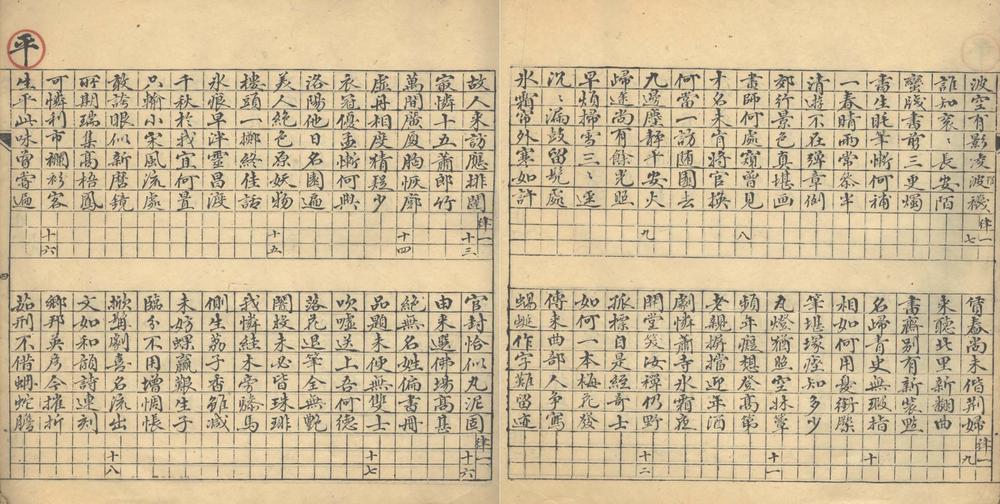 波空有影凌波襪
肆一
七
誰知衮々長安陌
蠻牋書剪三更燭
書生眊筆慚何補
一春晴雨常叅半
清遊不在彈章例
郊行景色真堪画
八
畫師何處窺曾見
十名未肯將官換
何當一訪随園去
九邊塵靜平安火
九
歸途尚有餘光照
早煩掃雪三々逕
沉々漏鼓留髡處
氷霜常外寒如許
賃舂尚未偕荆婦
肆一
九
來聽北里新翻曲
書齋別有新裝點
名歸青史無瑕指
十
相如何用憂銜橛
筆堪塚瘞知多少
九燈猶照空牀簟
十一
頻年癡想登高第
老親擠擋迎年酒
劇憐蕭寺氷霜夜
開堂笑汝禪仍野
十二
孤標自是經奇士
如何一本梅花發
傳來曲部人争寫
蜒作字難留迹
平
故人來訪應排闥
肆一
十三
最憐十五蕭郎竹
萬間廣廈胸恢廓
十四
虛舟相度猜疑少
衣冠優孟慚何典
洛陽他日名園遍
美人絕色原妖物
十五
樓頭一擲終佳話
氷恨早泮靈昌渡
千秋於我宜何置
只輸小宋風流處
敢誇眼似新磨鏡
所期瑞集高梧鳳
可憐利市襴衫客
十六
生平此味曾嘗遍
官封恰似丸泥固
肆一
十六
由來選佛場高集
絕無名姓偏書册
品題未便無雙士
十七
吹嘘送上吾何德
落花退筆全無艷
闇投未必皆珠琲
我憐絓木旁驂馬
側生荔子香雖减
未妨螺蠃艱生子
臨分不用增惆悵
掀髯劇喜名流出
十八
文如和韻詩連刻
鄉邦英彥今摧折
茹刑不借蚺蛇膽